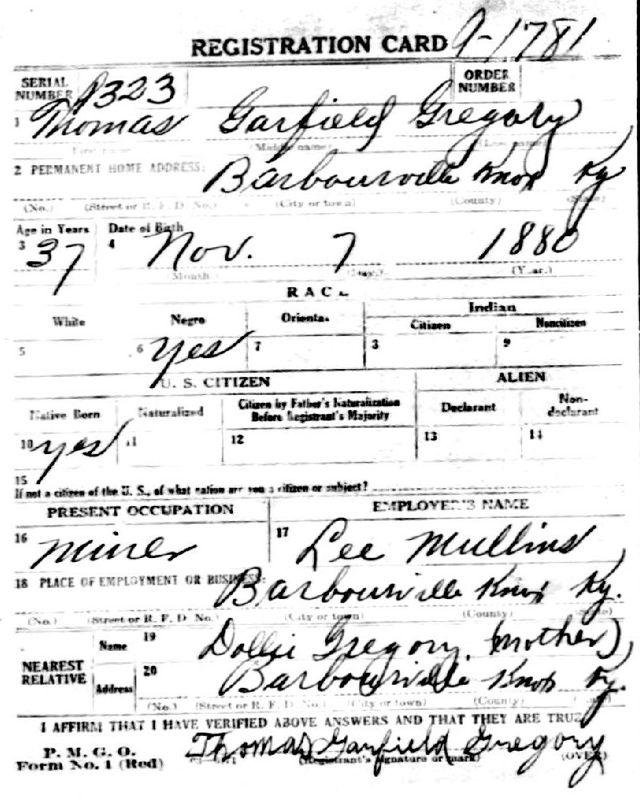 REGISTRATION CARD 9-1781
SERIAL NUMBER 323 ORDER NUMBER
1 Thomas Garfield Gregory
(First name) (Middle name) (Last name)
2 PERMANENT HOME ADDRESS: Barbourville Knox Ky
(No.) (Street or R. F. D. No.) (City or town) (County) (State)
Age in Years Date of Birth
3 37 4 Nov. 7 1880
Month (Day.) (Year.)
RACE
White Negro Oriental Indian
Citizen Noncitizen
5 6 yes 7 8 9
U. S. CITIZEN ALIEN
Native Born Naturalized Citizen by Father's Naturalization Before Registrant's Majority Declarant Non-declarant
10 yes 11 12 13 14
15
If not a citizen of the U. S., of what nation are you a citizen or subject?
PRESENT OCCUPATION EMPLOYER'S NAME
16 Miner 17 Lee Mullins
18 PLACE OF EMPLOYMENT OR BUSINESS: Barbourville Knox Ky.
(No.) (Street or R. F. D. No.) (City or town) (County) (State)
NEAREST RELATIVE Name 19 Dollie Gregory (mother)
Address 20 Barbourville Knox Ky.
(No.) (Street or R. F. D. No.) (City or town) (County) (State)
I AFFIRM THAT I HAVE VERIFIED ABOVE ANSWERS AND THAT THEY ARE TRUE
P. M. G. O.
Form No. 1 (Red) Thomas Garfield Gregory
(Registrant's signature or mark) (OVER)